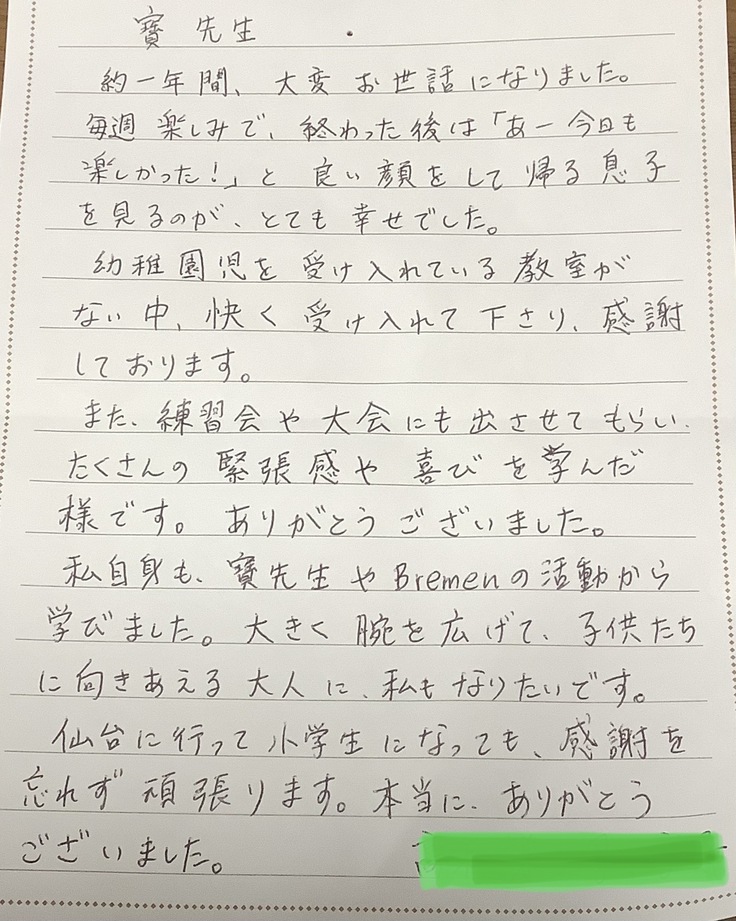 寳先生
約一年間、大変お世話になりました。
毎週楽しみで、終わった後は「あー今日も
楽しかった！」と良い顔をして帰る息子
を見るのが、とても幸せでした。
幼稚園児を受け入れている教室が
ない中、快く受け入れて下さり、感謝
しております。
また、練習会や大会にも出させてもらい、
たくさんの緊張感や喜びを学んだ
様です。ありがとうございました。
私自身も、寳先生やBremenの活動から
学びました。大きく腕を広げて、子供たち
に向きあえる大人に、私もなりたいです。
仙台に行って小学生になっても、感謝を
忘れず頑張ります。本当に、ありがとう
ございました。